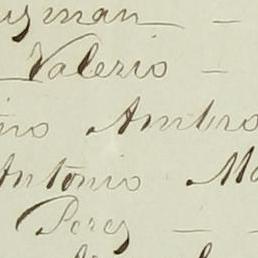 uzman —
Valerio —
no Ambro
Antonio Ma
Perez — —